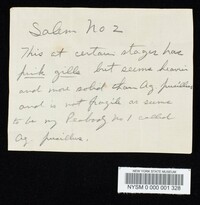 Salem No 2
This at certain stages has
pink gills but seems heavier
and more solid than Ag pusillus
and is not fragile as seems
to be my Peabody No 1 called
Ag pusillus.
NEW YORK STATE MUSEUM
NYSM 0 000 001 328